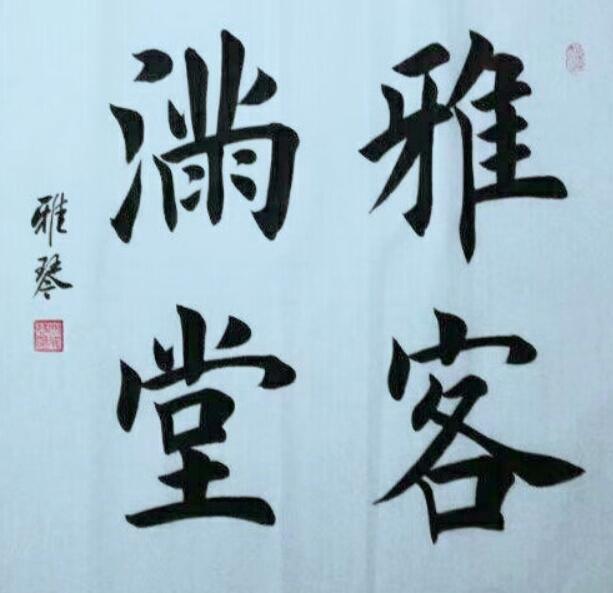 雅客
满堂
雅琴